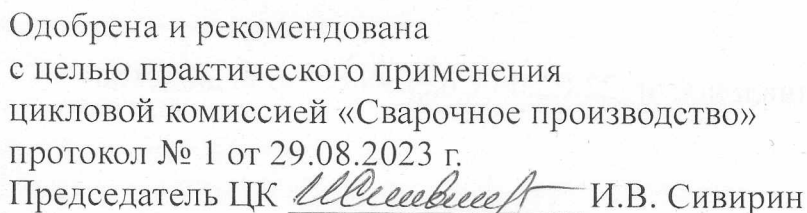 Одобрена и рекомендована
с целью практического применения
цикловой комиссией «Сварочное производство»
протокол № 1 от 29.08.2023 г.
Председатель ЦК И.В. Сивирин